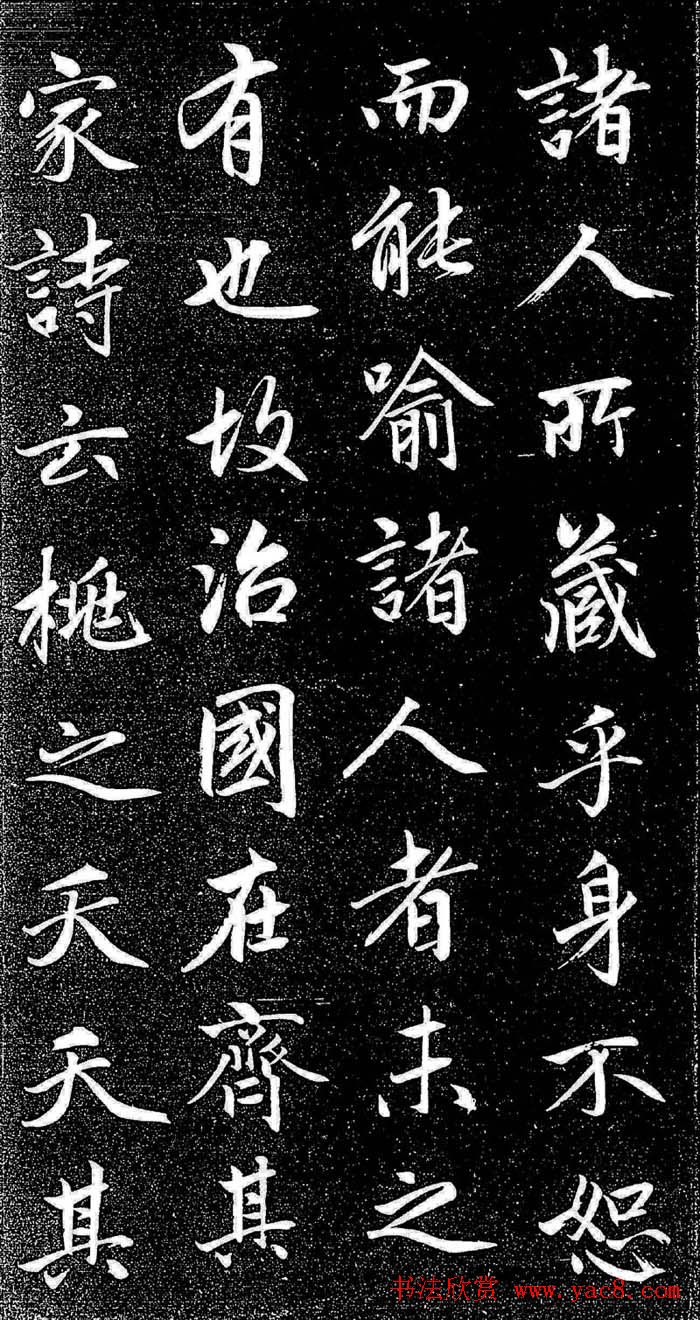 諸人所藏乎身不恕
而能喻諸人者未之
有也故治國在齊其
家詩云桃之夭夭其
书法欣赏 www.yac8.com